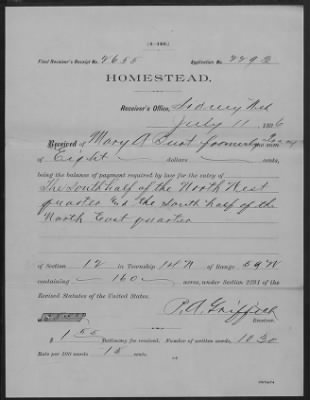 Final Receiver's Receipt No. 4655 Application No. 4492
HOMESTEAD.
Receiver's Office, Sidney Neb
July 11, 188
Received of Mary A formerly the sum
of Eight dollars cents,
being the balance of payment required by law for the entry of
The South half of the North West
quarter & the South half of the
North East quarter
of Section 12 in Township 14 N of Range 59 W
containing 160 acres, under Section 2291 of the
Revised Statutes of the United States.
P. A. Griffith
Receiver.
$ 1 55 Testimony for resident. Number of written words, 1030
Rate per 100 words 15 cents.